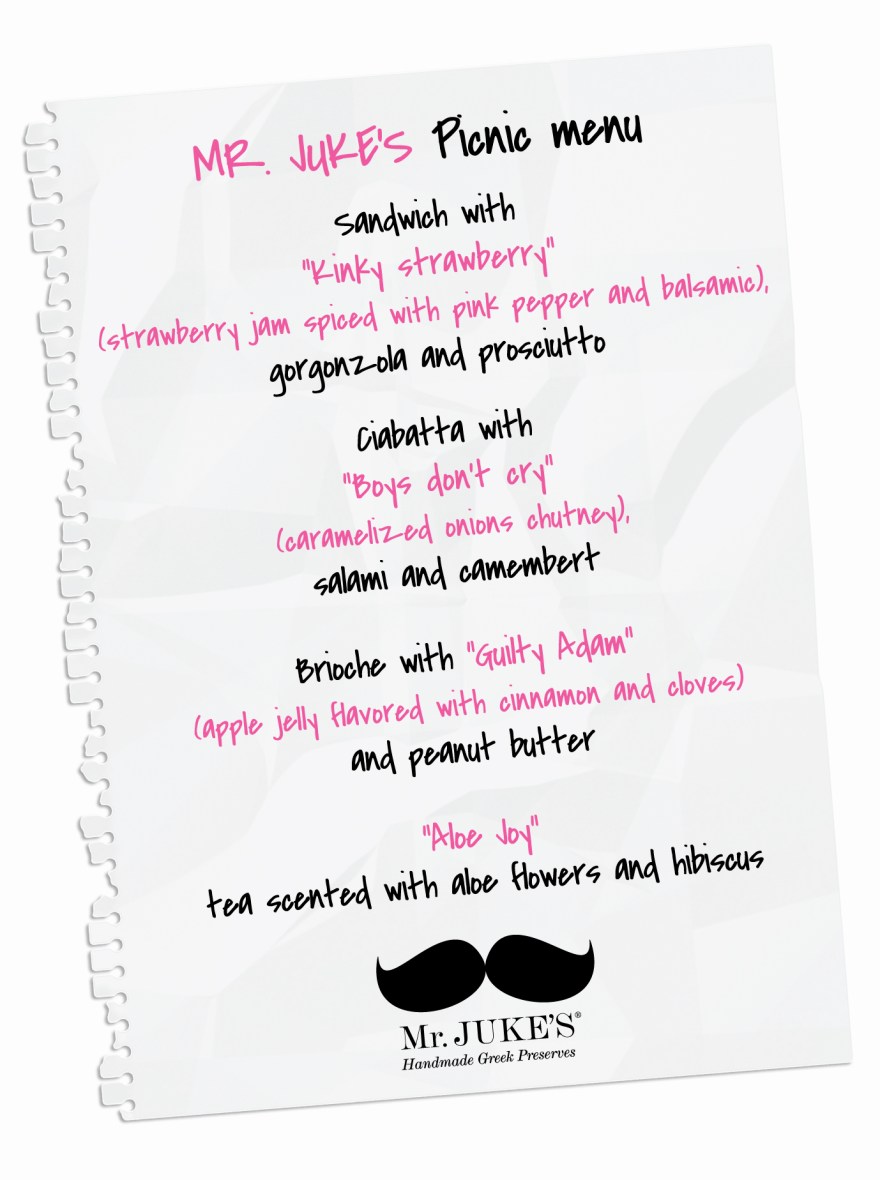 MR. JUKE'S Picnic menu
Sandwich with
"Kinky strawberry"
(strawberry jam spiced with pink pepper and balsamic),
gorgonzola and prosciutto
Ciabatta with
"Boys don't cry"
(caramelized onions chutney),
salami and camembert
Brioche with "Guilty Adam"
(apple jelly flavored with cinnamon and cloves)
and peanut butter
"Aloe Joy"
tea scented with aloe flowers and hibiscus
Mr. JUKE'S®
Handmade Greek Preserves